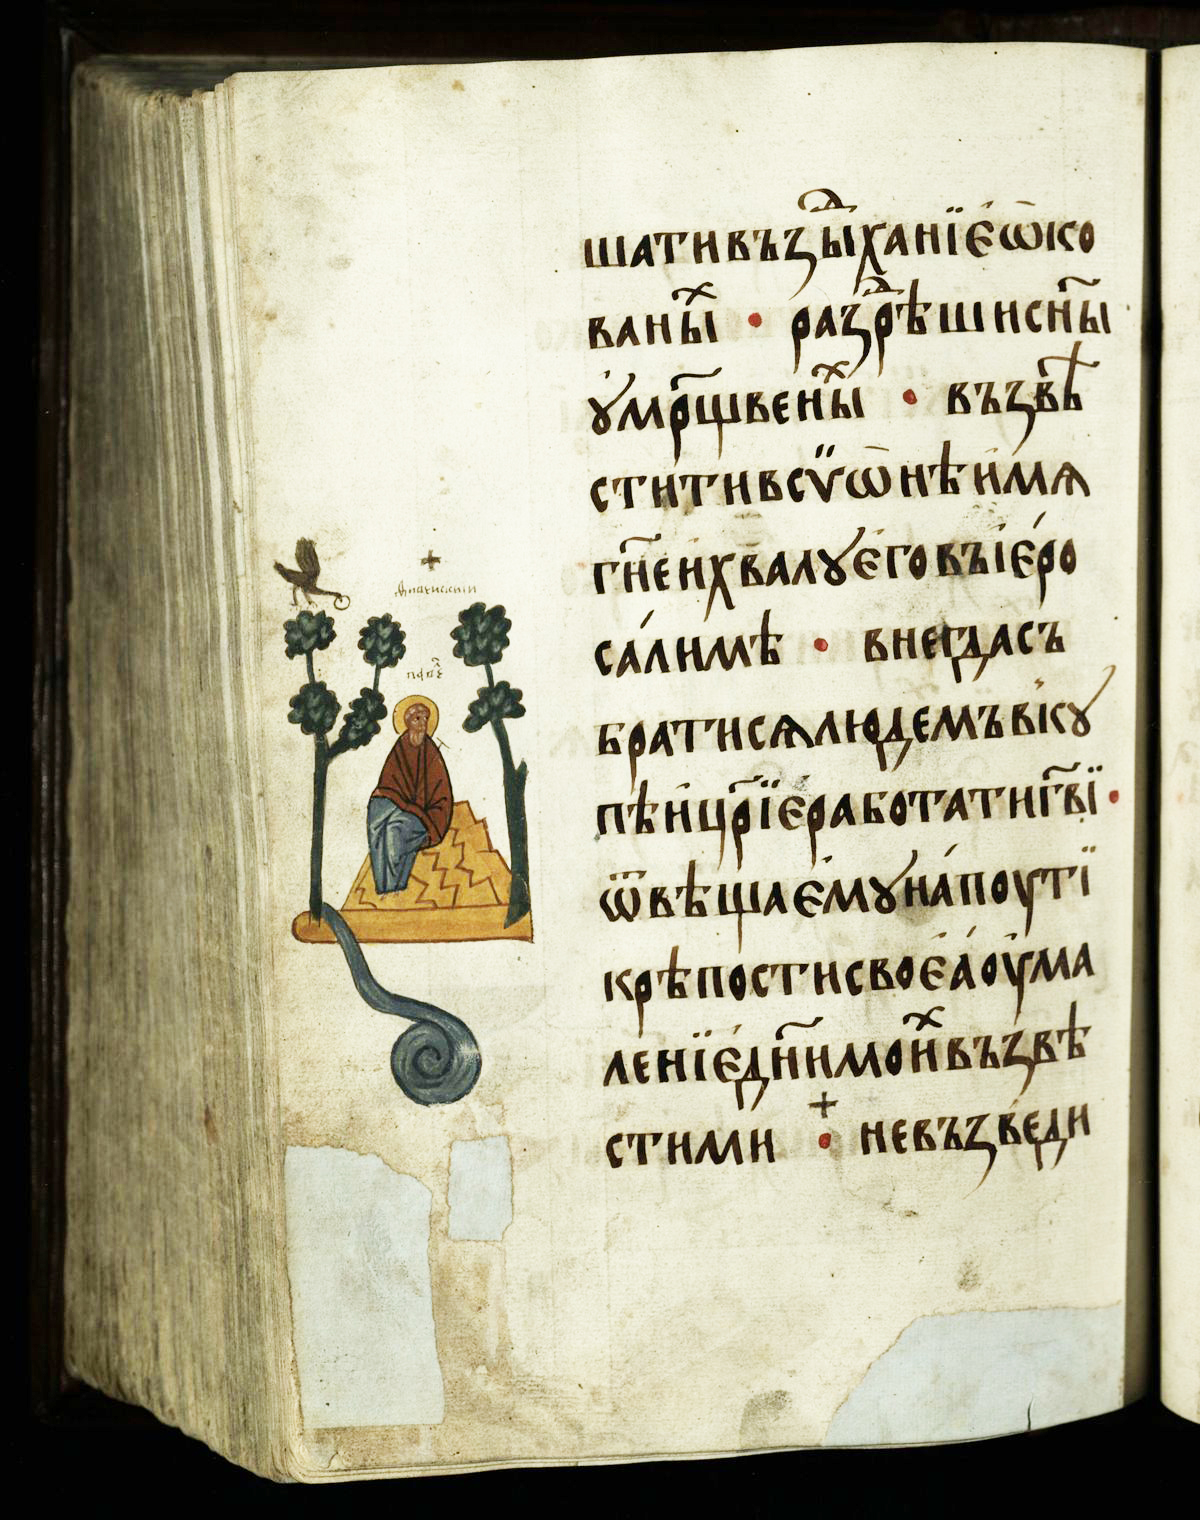 шативъздыханїеѡко
ваныⷯ · разрѣшисн҃ы
ꙋмрщвеныⷯ · възвѣ
ститивсѵѡнѣимѧ
гн҃еихвалꙋеговъіеро
сали́мѣ · внегдасъ
братисѧлюдемъвкꙋ
пѣицр҃їеработатигв҃ї ·
ѿвѣщаемꙋнапоути
крѣпостисвоеаоума
ленїедн҃иимоиⷯвъзвѣ
стими · невъзведи